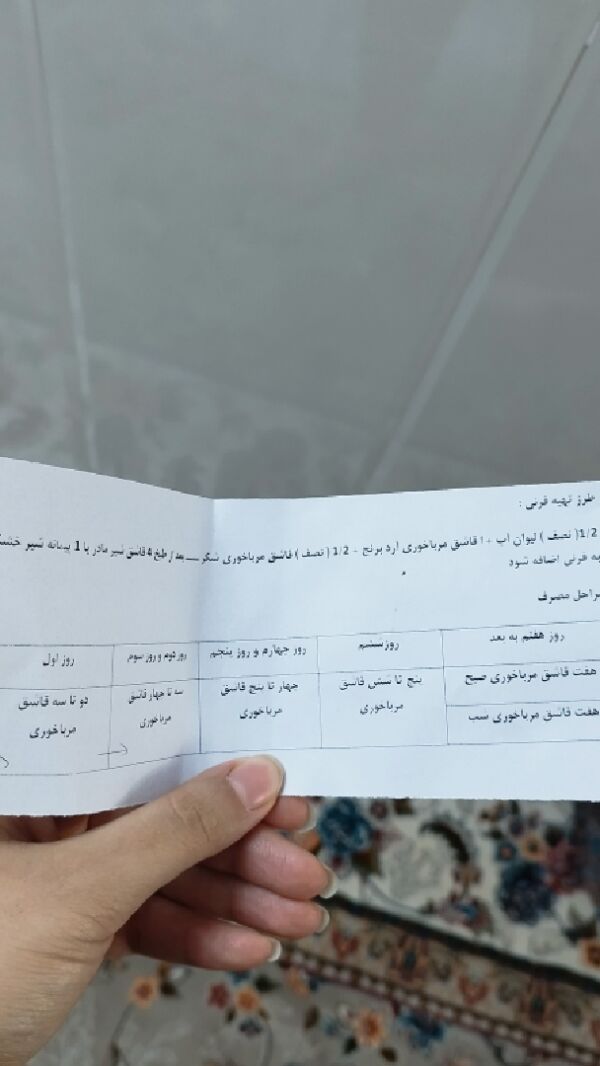 طرز تهیه فرنی :
1/2( نصف ) لیوان آب + 1 قاشق مرباخوری آرد برنج + 1/2 ( نصف ) قاشق مرباخوری شکر — بعد از طبخ 4 قاشق شیر مادر یا 1 پیمانه شیر خشک
به فرنی اضافه شود
مراحل مصرف
روز اول
روز دوم و روز سوم
روز چهارم و روز پنجم
روز ششم
روز هفتم به بعد
دو تا سه قاشق
مرباخوری
سه تا چهار قاشق
مرباخوری
چهار تا پنج قاشق
مرباخوری
پنج تا شش قاشق
مرباخوری
هفت قاشق مرباخوری صبح
هفت قاشق مرباخوری شب